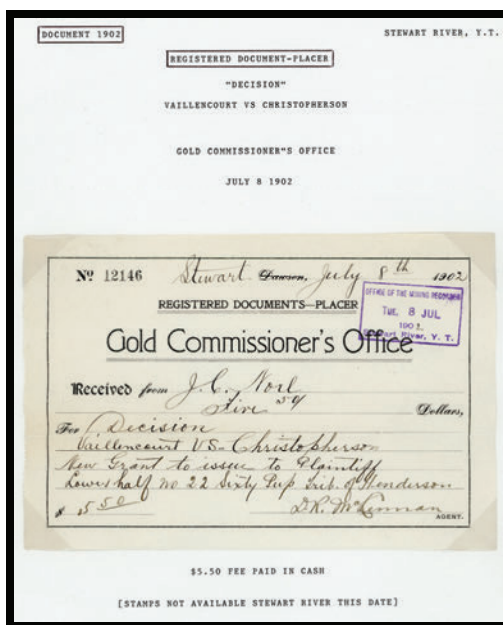 DOCUMENT 1902
STEWART RIVER, Y.T.
REGISTERED DOCUMENT-PLACER
"DECISION"
VAILLENCOURT VS CHRISTOPHERSON
GOLD COMMISSIONER"S OFFICE
JULY 8 1902
Nº 12146 Stewart Dawson, July 8th 1902
REGISTERED DOCUMENTS—PLACER
OFFICE OF THE MINING RECORDER
TUE. 8 JUL
1902
Stewart River, Y. T.
Gold Commissioner's Office
Received from J. C. Noel
Five 50/ Dollars,
For Decision
Vaillencourt VS- Christopherson
New Grant to issue to Plaintiff
Lower half no 22 Sixty Pup Trib. of Henderson
$ 5 50 D.R. McLennan
AGENT.
$5.50 FEE PAID IN CASH
[STAMPS NOT AVAILABLE STEWART RIVER THIS DATE]